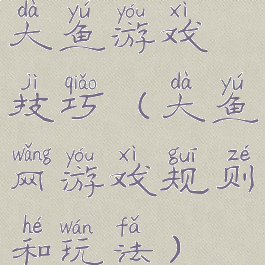 dà yú yóu xì
大鱼游戏
jì qiǎo dà yú
技巧(大鱼
wǎng yóu xì guī zé
网游戏规则
hé wán fǎ
和玩法)